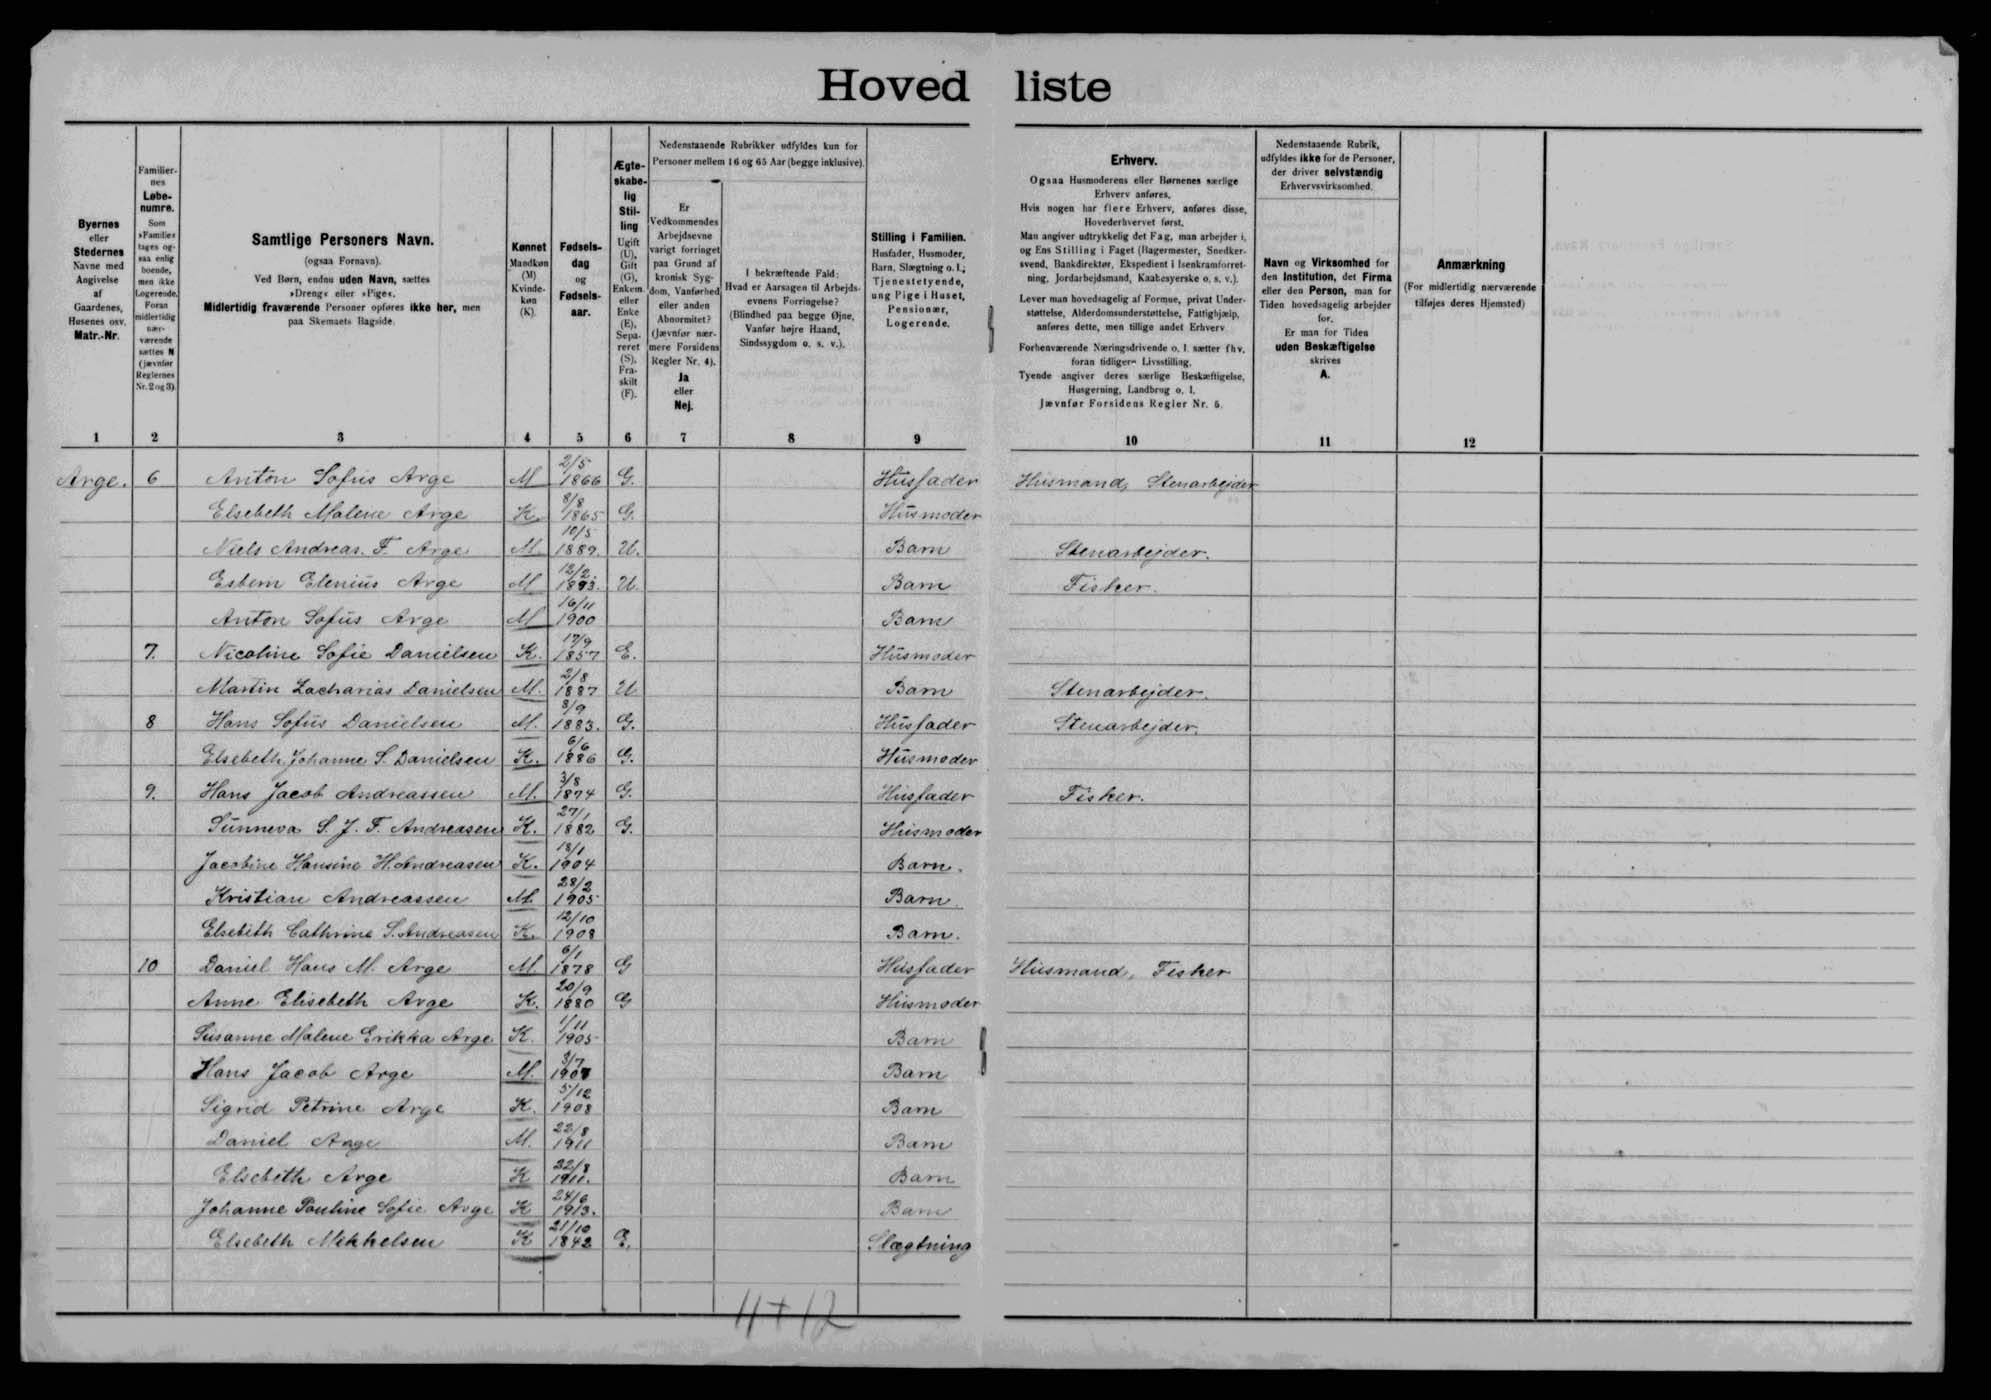 Hovedliste
Byernes
eller
Stedernes
Navne med
Angivelse
af
Gaardenes,
Husenes osv.
Matr.-Nr.
Familier-
nes
Løbe-
numre.
Som
»Familie«
tages og-
saa enlig
boende,
men ikke
Logerende.
Foran
midlertidig
nær-
værende
sættes N
(jævnfør
Reglernes
Nr. 2 og 3).
Samtlige Personers Navn.
(ogsaa Fornavn).
Ved Børn, endnu uden Navn, sættes
»Dreng« eller »Pige«.
Midlertidig fraværende Personer opføres ikke her, men
paa Skemaets Bagside.
Kønnet
Mandkøn
(M)
Kvinde-
køn
(K).
Fødsels-
dag
og
Fødsels-
aar.
Ægte-
skabe-
lig
Stil-
ling
Ugift
(U),
Gift
(G),
Enkem.
eller
Enke
(E),
Sepa-
reret
(S),
Fra-
skilt
(F).
Nedenstaaende Rubrikker udfyldes kun for
Personer mellem 16 og 65 Aar (begge inklusive).
Er
Vedkommendes
Arbejdsevne
varigt forringet
paa Grund af
kronisk Syg-
dom, Vanførhed
eller anden
Abnormitet?
(Jævnfør nær-
mere Forsidens
Regler Nr. 4).
Ja
eller
Nej.
I bekræftende Fald:
Hvad er Aarsagen til Arbejds-
evnens Forringelse?
(Blindhed paa begge Øjne,
Vanfør højre Haand,
Sindssygdom o. s. v.).
Stilling i Familien.
Husfader, Husmoder,
Barn, Slægtning o. l.;
Tjenestetyende,
ung Pige i Huset,
Pensionær,
Logerende.
Erhverv.
Ogsaa Husmoderens eller Børnenes særlige
Erhverv anføres.
Hvis nogen har flere Erhverv, anføres disse,
Hovederhvervet først.
Man angiver udtrykkelig det Fag, man arbejder i,
og Ens Stilling i Faget (Bagermester, Snedker-
svend, Bankdirektør, Ekspedient i Isenkramforret-
ning, Jordarbejdsmand, Kaabesyerske o. s. v.).
Lever man hovedsagelig af Formue, privat Under-
støttelse, Alderdomsunderstøttelse, Fattighjælp,
anføres dette, men tillige andet Erhverv
Forhenværende Næringsdrivende o. l. sætter fhv.
foran tidligere Livsstilling.
Tyende angiver deres særlige Beskæftigelse,
Husgerning, Landbrug o. l.
Jævnfør Forsidens Regler Nr. 5.
Nedenstaaende Rubrik,
udfyldes ikke for de Personer,
der driver selvstændig
Erhvervsvirksomhed.
Navn og Virksomhed for
den Institution, det Firma
eller den Person, man for
Tiden hovedsagelig arbejder
for.
Er man for Tiden
uden Beskæftigelse
skrives
A.
Anmærkning
(For midlertidig nærværende
tilføjes deres Hjemsted)
1 2 3 4 5 6 7 8 9 10 11 12
Arge. 6 Anton Sofus Arge M 2/5 1866 G. Husfader Husmand, Stenarbejder
Elsebeth Malene Arge K. 8/8 1865 G. Husmoder
Niels Andreas. F. Arge M. 10/5 1889. U. Barn Stenarbejder.
Esbern Elenius Arge M 12/2. 1893. U. Barn Fisker.
Anton Sofus Arge M 16/11 1900 Barn
7. Nicoline Sofie Danielsen K. 17/9 1857 E. Husmoder
Martin Zacharias Danielsen M. 2/8 1887 U Barn Stenarbejder.
8 Hans Sofus Danielsen M. 8/9 1883. G. Husfader Stenarbejder.
Elsebeth Johanne S. Danielsen K. 6/6 1886 G. Husmoder
9. Hans Jacob Andreassen M. 3/8 1874 G. Husfader Fisker.
Sunneva S. J. F. Andreasen K. 27/1 1882 G. Husmoder
Jacobine Hansine H. Andreasen K. 18/1 1904 Barn.
Kristian Andreassen M. 28/2 1905 Barn.
Elsebeth Cathrine S. Andreasen K. 12/10 1908 Barn.
10 Daniel Hans M. Arge M. 6/1 1878 G Husfader Husmand, Fisker
Anne Elisebeth Arge K. 20/9 1880 G Husmoder
Susanne Malene Erikka Arge K. 1/11 1905 Barn
Hans Jacob Arge M. 3/7 1907 Barn
Sigrid Petrine Arge K. 5/12 1908 Barn
Daniel Arge M. 22/8 1911 Barn
Elsebeth Arge K 22/8 1911. Barn
Johanne Pouline Sofie Arge K 24/6 1913. Barn
Elsebeth Mikkelsen K 21/10 1842 E. Slægtning
11 + 12